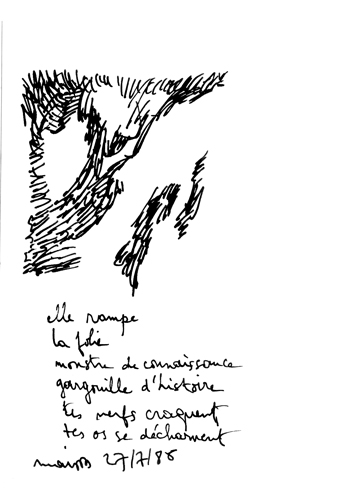 elle rampe
la folie
monstre de connaissance
gargouille d'histoire
tes nerfs craquent
tes os se décharnent
27/7/86